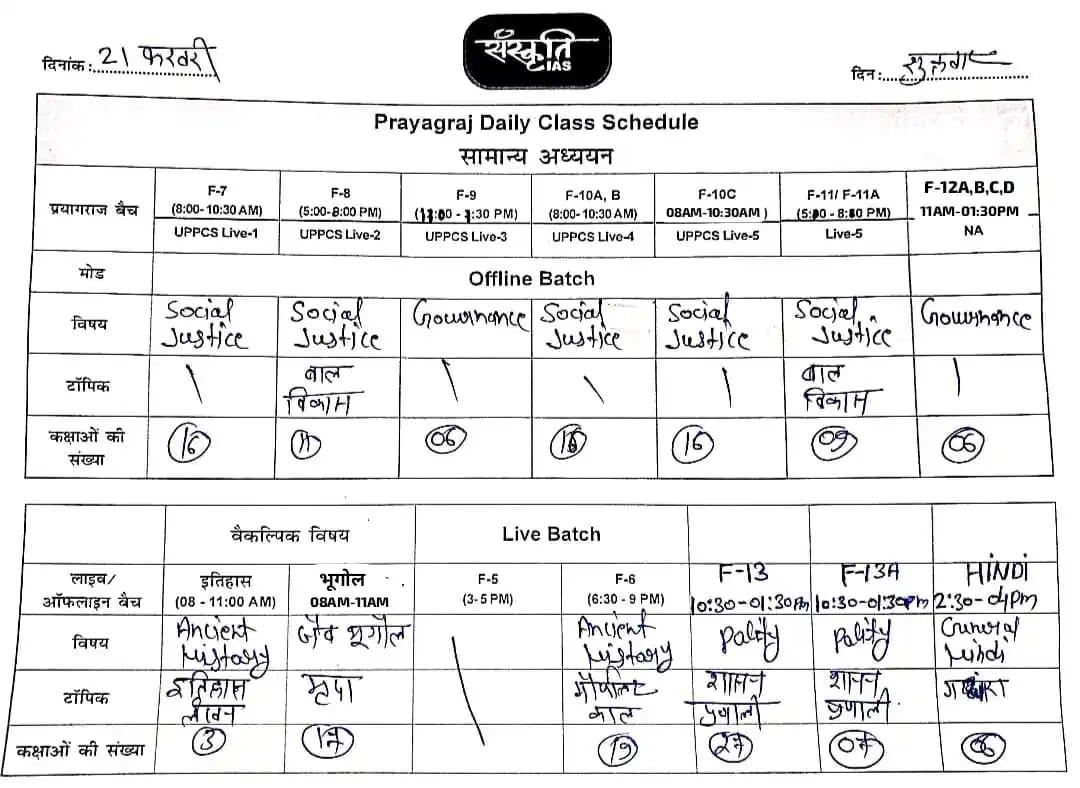 दिनांक: 21 फरवरी
संस्कृति
IAS
दिन: शुक्रवार
Prayagraj Daily Class Schedule
सामान्य अध्ययन
प्रयागराज बैच
F-7
(8:00-10:30 AM)
UPPCS Live-1
F-8
(5:00-8:00 PM)
UPPCS Live-2
F-9
UPPCS Live-3
F-10A, B
(8:00-10:30 AM)
UPPCS Live-4
F-10C
08AM-10:30AM )
UPPCS Live-5
F-11/ F-11A
Live-5
F-12A,B,C,D
11AM-01:30PM
NA
मोड
Offline Batch
विषय
Social
Justice
Social
Justice
Governance
Social
Justice
Social
Justice
Social
Justice
Governance
टॉपिक
बाल
विकास
बाल
विकास
कक्षाओं की
संख्या
16
11
06
16
09
06
वैकल्पिक विषय
Live Batch
लाइव/
ऑफलाइन बैच
इतिहास
(08 - 11:00 AM)
भूगोल
08AM-11AM
F-5
(3- 5 PM)
F-6
(6:30 - 9 PM)
F-13
10:30-01:30PM
F-13A
10:30-01:30PM
HINDI
2:30-04PM
विषय
Ancient
History
जैव भूगोल
Ancient
History
Polity
Polity
General
Hindi
टॉपिक
इतिहास
लेखन
मृदा
काल
शासन
प्रणाली
शासन
प्रणाली
कक्षाओं की संख्या
3
17
19
27
07